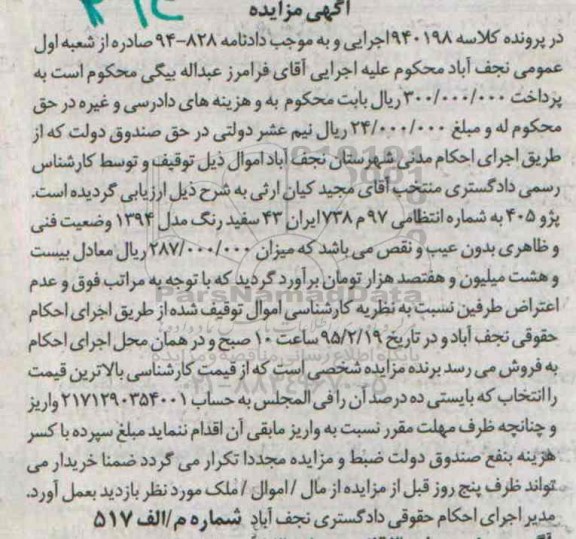 آگهی مزایده
در پرونده کلاسه ۹۴۰۱۹۸اجرایی و به موجب دادنامه ۸۲۸-۹۴ صادره از شعبه اول
عمومی نجف آباد محکوم علیه اجرایی آقای فرامرز عبداله بیگی محکوم است به
پرداخت ۳۰۰/۰۰۰/۰۰۰ ریال بابت محکوم به و هزینه های دادرسی و غیره در حق
محکوم له و مبلغ ۲۴/۰۰۰/۰۰۰ ریال نیم عشر دولتی در حق صندوق دولت که از
طریق اجرای احکام مدنی شهرستان نجف آباد اموال ذیل توقیف و توسط کارشناس
رسمی دادگستری منتخب آقای مجید کیان ارثی به شرح ذیل ارزیابی گردیده است.
پژو ۴۰۵ به شماره انتظامی ۹۷ م ۷۳۸ ایران ۴۳ سفید رنگ مدل ۱۳۹۴ وضعیت فنی
و ظاهری بدون عیب و نقص می باشد که میزان ۲۸۷/۰۰۰/۰۰۰ ریال معادل بیست
و هشت میلیون و هفتصد هزار تومان برآورد گردید که با توجه به مراتب فوق و عدم
ParsNamadData
اعتراض طرفین نسبت به نظریه کارشناسی اموال توقیف شده از طریق اجرای احکام
حقوقی نجف آباد و در تاریخ ۹۵/۲/۱۹ ساعت ۱۰ صبح و در همان محل اجرای احکام
پایگاه اطلاع رسانی مناقصه و مزایده
به فروش می رسد برنده مزایده شخصی است که از قیمت کارشناسی بالاترین قیمت
را انتخاب که بایستی ده درصد آن را فی المجلس به حساب ۲۱۷۱۲۹۰۳۵۴۰۰۱ واریز
و چنانچه ظرف مهلت مقرر نسبت به واریز مابقی آن اقدام ننماید مبلغ سپرده با کسر
هزینه بنفع صندوق دولت ضبط و مزایده مجددا تکرار می گردد ضمنا خریدار می
تواند ظرف پنج روز قبل از مزایده از مال / اموال / ملک مورد نظر بازدید بعمل آورد.
مدیر اجرای احکام حقوقی دادگستری نجف آباد شماره م/الف ۵۱۷